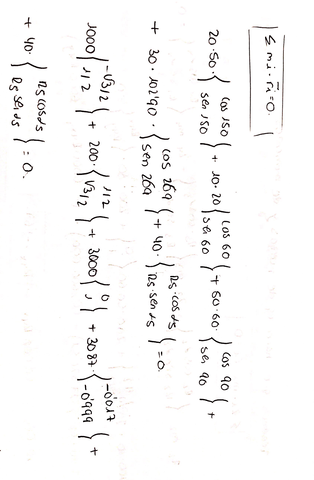 Σ mi · r̄i = 0.
20·50·{cos 150 / sen 150} + 10·20{cos 60 / sen 60} + 50·60·{cos 90 / sen 90} +
+ 30·102'90·{cos 269 / sen 269} + 40·{rs·cos αs / rs·sen αs} = 0.
1000{-√3/2 / 1/2} + 200·{1/2 / √3/2} + 3000{0 / 1} + 3087·{-0'017 / -0'999} +
+ 40·{rs cos αs / rs sen αs} = 0.